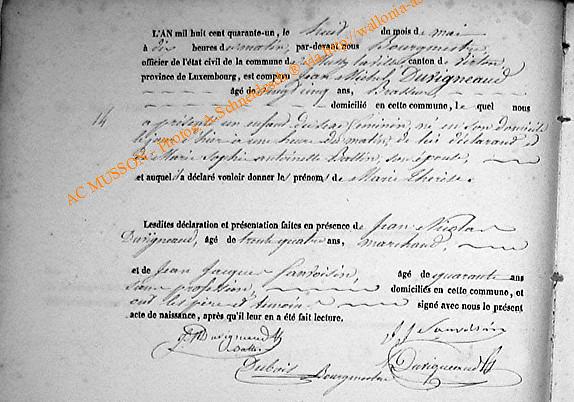 L'AN mil huit cent quarante-un, le huit du mois de mai
à dix heures du matin, par-devant nous Bourgmestre
officier de l'état civil de la commune de Mussy canton de Virton,
province de Luxembourg, est comparu Jean Michel Duvigneaud
âgé de cinq ans, Brasseur
domicilié en cette commune, le quel nous
14
a présenté un enfant du sexe féminin, né en son domicile
le jour d'hier à une heure du matin, de lui déclarant
& de Marie Sophie antoinette son épouse,
et auquel il a déclaré vouloir donner les prénoms de Marie Thérèse.
Lesdites déclaration et présentation faites en présence de Jean Nicolas
Duvigneaud, âgé de trente quatre ans, marchand,
et de Jean Jacques âgé de quarante ans
sans profession, domiciliés en cette commune, et
ont les père et témoins signé avec nous le présent
acte de naissance, après qu'il leur en a été fait lecture.
Duvigneaud
Dubois Bourgmestre
Duvigneaud
AC MUSSON - Photos A. Schneidesch © ida.http://wallonia-as